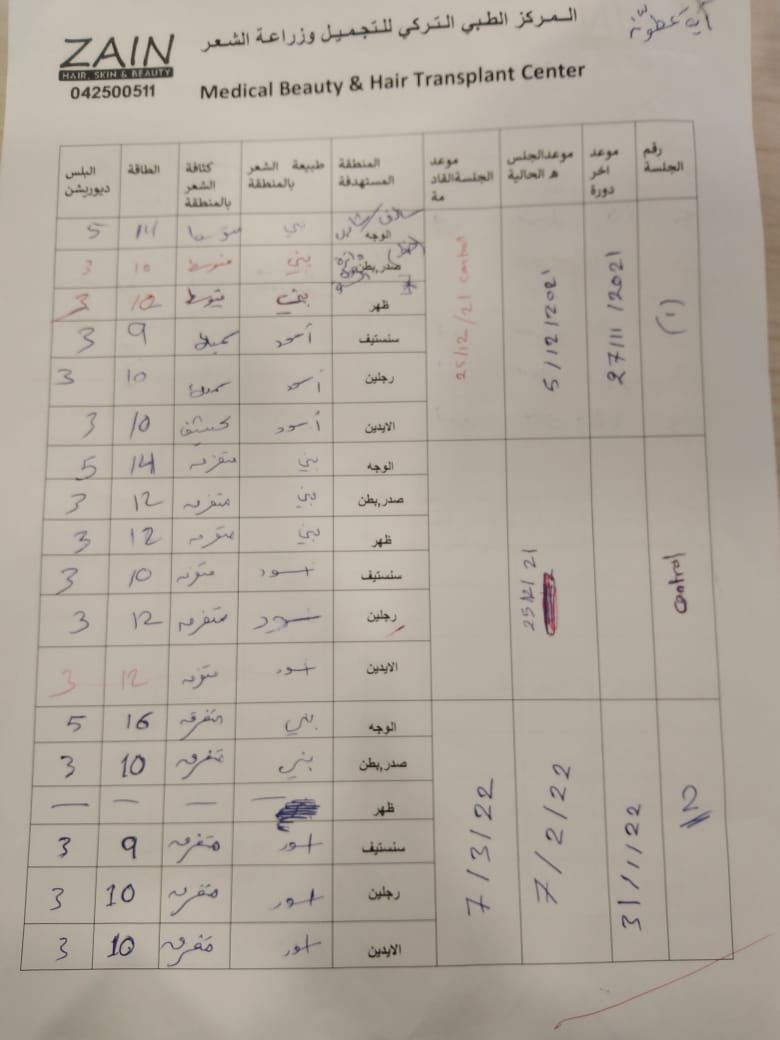 ZAIN
HAIR, SKIN & BEAUTY
042500511
المركز الطبي التركي للتجميل وزراعة الشعر
Medical Beauty & Hair Transplant Center
آية
رقم الجلسة | موعد اخر دورة | موعدالجلسه الحالية | موعد الجلسةالقادمة | المنطقة المستهدفة | طبيعة الشعر بالمنطقة | كثافة الشعر بالمنطقة | الطاقة | البلس ديوريشن
(١) | 27/11/2021 | 5/12/2021 | 25/12/21 control
الوجه | بني | متوسط | 14 | 5
صدر,بطن | بني | متوسط | 10 | 3
ظهر | بني | متوسط | 10 | 3
سنستيف | أسود | 9 | 3
رجلين | أسود | 10 | 3
الايدين | أسود | كثيف | 10 | 3
control | 25/12/21
الوجه | بني | متفرقه | 14 | 5
صدر,بطن | بني | متفرقه | 12 | 3
ظهر | بني | متفرقه | 12 | 3
سنستيف | اسود | متفرقه | 10 | 3
رجلين | اسود | متفرقه | 12 | 3
الايدين | اسود | متفرقه | 12 | 3
2 | 31/1/22 | 7/2/22 | 7/3/22
الوجه | بني | متفرقه | 16 | 5
صدر,بطن | بني | متفرقه | 10 | 3
ظهر | — | — | — | —
سنستيف | اسود | متفرقه | 9 | 3
رجلين | اسود | متفرقه | 10 | 3
الايدين | اسود | متفرقه | 10 | 3